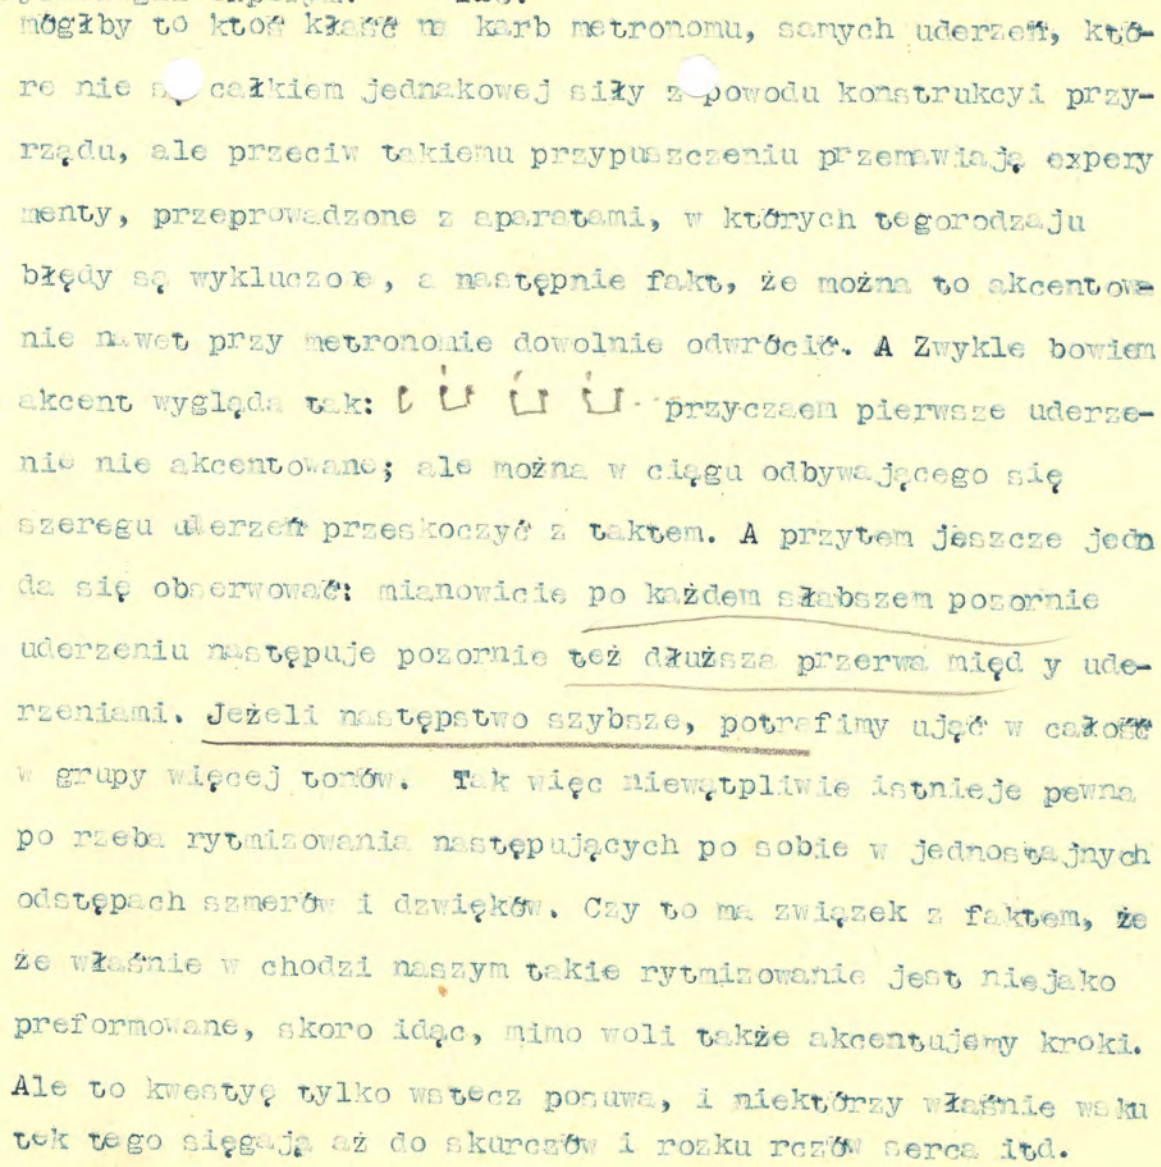 mógłby to ktoś kłaść na karb metronomu, samych uderzeń, któ-
re nie są całkiem jednakowej siły z powodu konstrukcyi przy-
rządu, ale przeciw takiemu przypuszczeniu przemawiają expery
menty, przeprowadzone z aparatami, w których tegorodzaju
błędy są wykluczone, a następnie fakt, że można to akcentowa
nie nawet przy metronomie dowolnie odwrócić. A Zwykle bowiem
akcent wygląda tak: przyczaem pierwsze uderze-
nie nie akcentowane; ale można w ciągu odbywającego się
szeregu uderzeń przeskoczyć z taktem. A przytem jeszcze jedn
da się obserwować: mianowicie po każdem słabszem pozornie
uderzeniu następuje pozornie też dłuższa przerwa międ y ude-
rzeniami. Jeżeli następstwo szybsze, potrafimy ująć w całość
w grupy więcej tonów. Tak więc niewątpliwie istnieje pewna
po rzeba rytmizowania następujących po sobie w jednostajnych
odstępach szmerów i dzwięków. Czy to ma związek z faktem, że
że właśnie w chodzi naszym takie rytmizowanie jest niejako
preformowane, skoro idąc, mimo woli także akcentujemy kroki.
Ale to kwestyę tylko wstecz posuwa, i niektórzy właśnie wsku
tek tego sięgają aż do skurczów i rozku rczów serca itd.